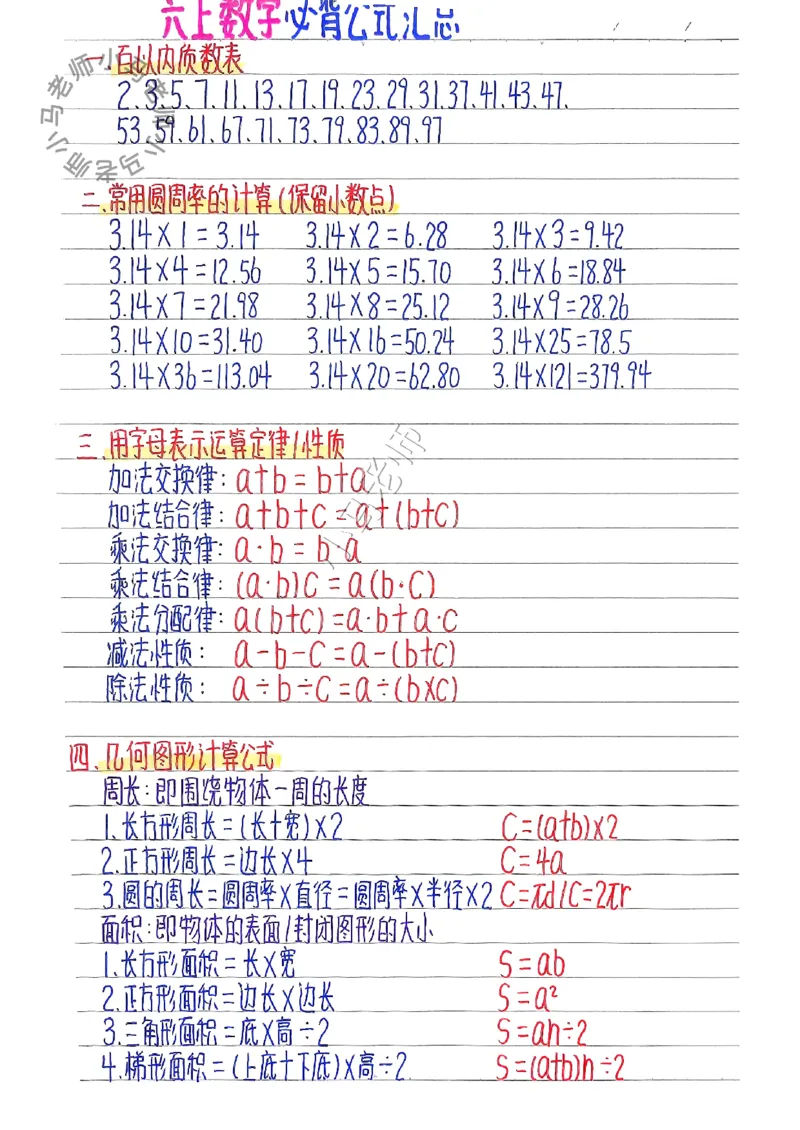 六上数学必背公式汇总
一.百以内质数表
2.3.5.7.11.13.17.19.23.29.31.37.41.43.47.
53.59.61.67.71.73.79.83.89.97
二.常用圆周率的计算(保留小数点)
3.14×1=3.14 3.14×2=6.28 3.14×3=9.42
3.14×4=12.56 3.14×5=15.70 3.14×6=18.84
3.14×7=21.98 3.14×8=25.12 3.14×9=28.26
3.14×10=31.40 3.14×16=50.24 3.14×25=78.5
3.14×36=113.04 3.14×20=62.80 3.14×121=379.94
三.用字母表示运算定律/性质
加法交换律: a+b=b+a
加法结合律: a+b+c=a+(b+c)
乘法交换律: a·b=b·a
乘法结合律: (a·b)c=a(b·c)
乘法分配律: a(b+c)=a·b+a·c
减法性质: a-b-c=a-(b+c)
除法性质: a÷b÷c=a÷(b×c)
四.几何图形计算公式
周长:即围绕物体一周的长度
1.长方形周长=(长+宽)×2 C=(a+b)×2
2.正方形周长=边长×4 C=4a
3.圆的周长=圆周率×直径=圆周率×半径×2 C=πd/C=2πr
面积:即物体的表面/封闭图形的大小
1.长方形面积=长×宽 S=ab
2.正方形面积=边长×边长 S=a²
3.三角形面积=底×高÷2 S=ah÷2
4.梯形面积=(上底+下底)×高÷2 S=(a+b)h÷2
小马老师小马老师小马老师
小马老师